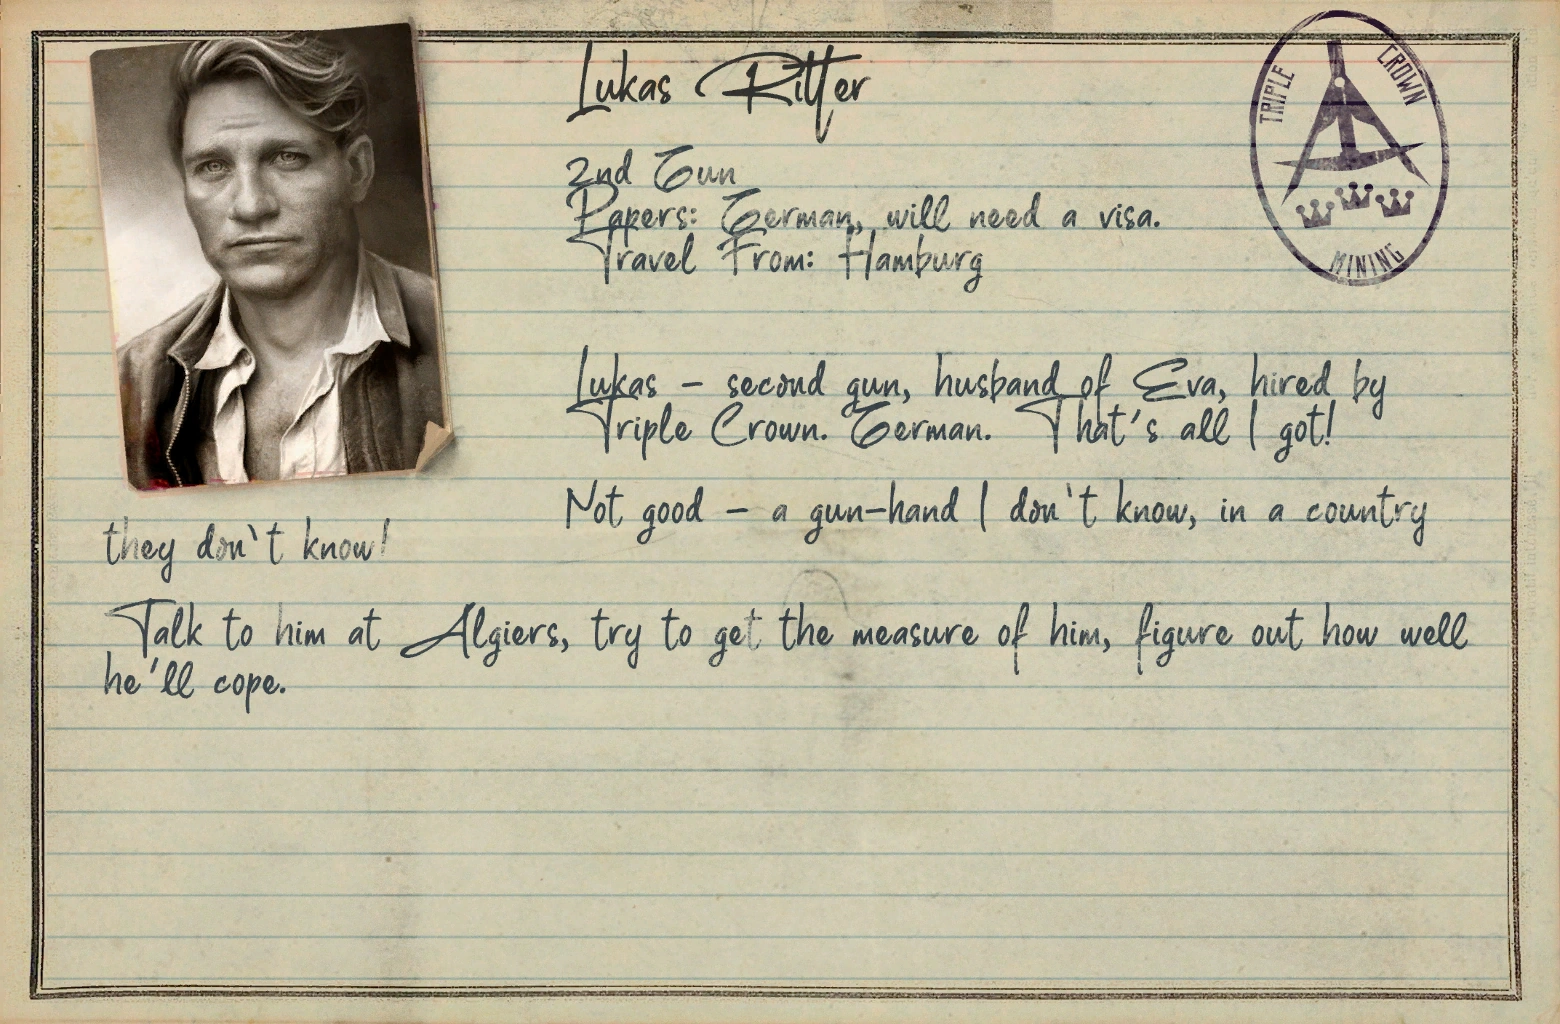 Lukas Ritter
TRIPLE CROWN
MINING
2nd Gun
Papers: German, will need a visa.
Travel From: Hamburg
Lukas – second gun, husband of Eva, hired by
Triple Crown. German. That's all I got!
Not good – a gun-hand I don't know, in a country
they don't know!
Talk to him at Algiers, try to get the measure of him, figure out how well
he'll cope.